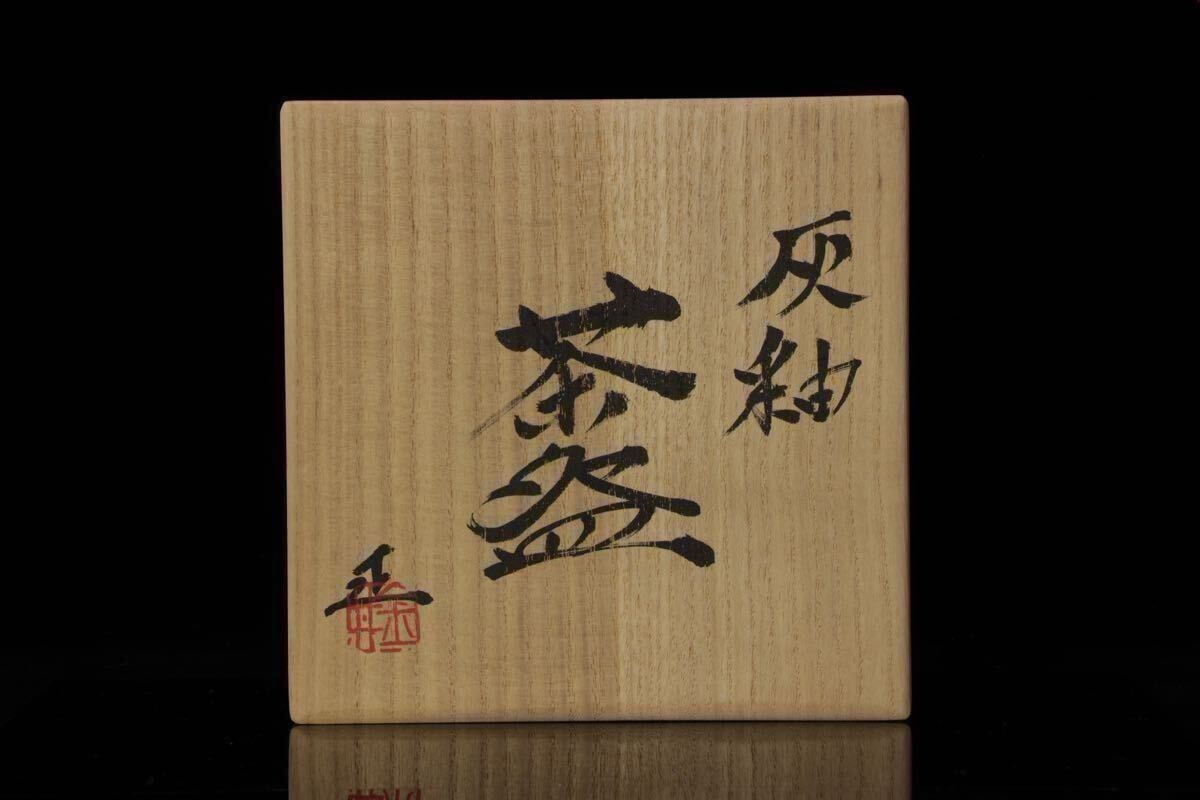 灰釉
茶盌
正